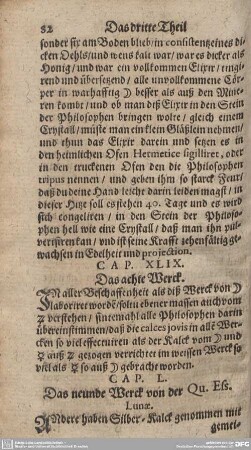 82 Das dritte Theil
sonder fix am Boden blieb / in consistentz eines di-
cken Oehls / und wens kalt war / war es dicker als
Honig / und war ein vollkommen Elixir / tingi-
rend und übersetzend / alle unvollkommene Cör-
per in warhafftig ☽ besser als auß den Mine-
ren kombt / und ob man deß Elixir in den Stein
der Philosophen bringen wolte / gleich einem
Crystall / müste man ein klein Gläßlein nehmen
und thun das Elixir darein und setzen es in
den heimlichen Ofen Hermetice sigilliret, oder
in den truckenen Ofen den die Philosophen
tripus nennen / und geben ihm so starck Feur /
daß du deine Hand leicht darin leiden magst / in
dieser Hitze soll es stehen 40. Tage und es wird
sich congeliren / in den Stein der Philoso-
phen hell wie eine Crystall / daß man ihn pul-
verisiren kan / und ist seine Krafft zehenfältig ge-
wachsen in Edelheit und projection.
CAP. XLIX.
Das achte Werck.
IN aller Beschaffenheit als diß Werck von ☽
laboriret worden / so ist ebener massen auch vom
♃ verstehen / sintemahl alle Philosophen darin
übereinstimmen / daß die calces jovis in alle Wer-
cken so viel effectuiren als der Kalck vom ☽ und
☿ auß ♃ gezogen verrichtet im weissen Werck so
viel als ☿ so auß ☽ gebracht worden.
CAP. L.
Das neunde Werck von der Qu. Ess.
Lunæ.
ANdere haben Silber-Kalck genommen mit
gemei-